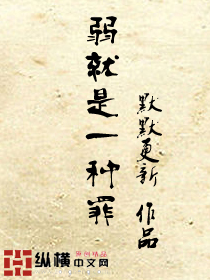 弱就是一种罪
默默更新 作品
纵横中文网